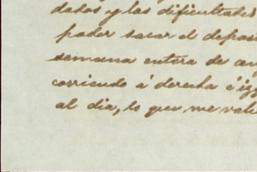 dados y las dificultades
poder sacar el depos
semana entera de
corriendo á derecha é iz
al dia, lo que me val